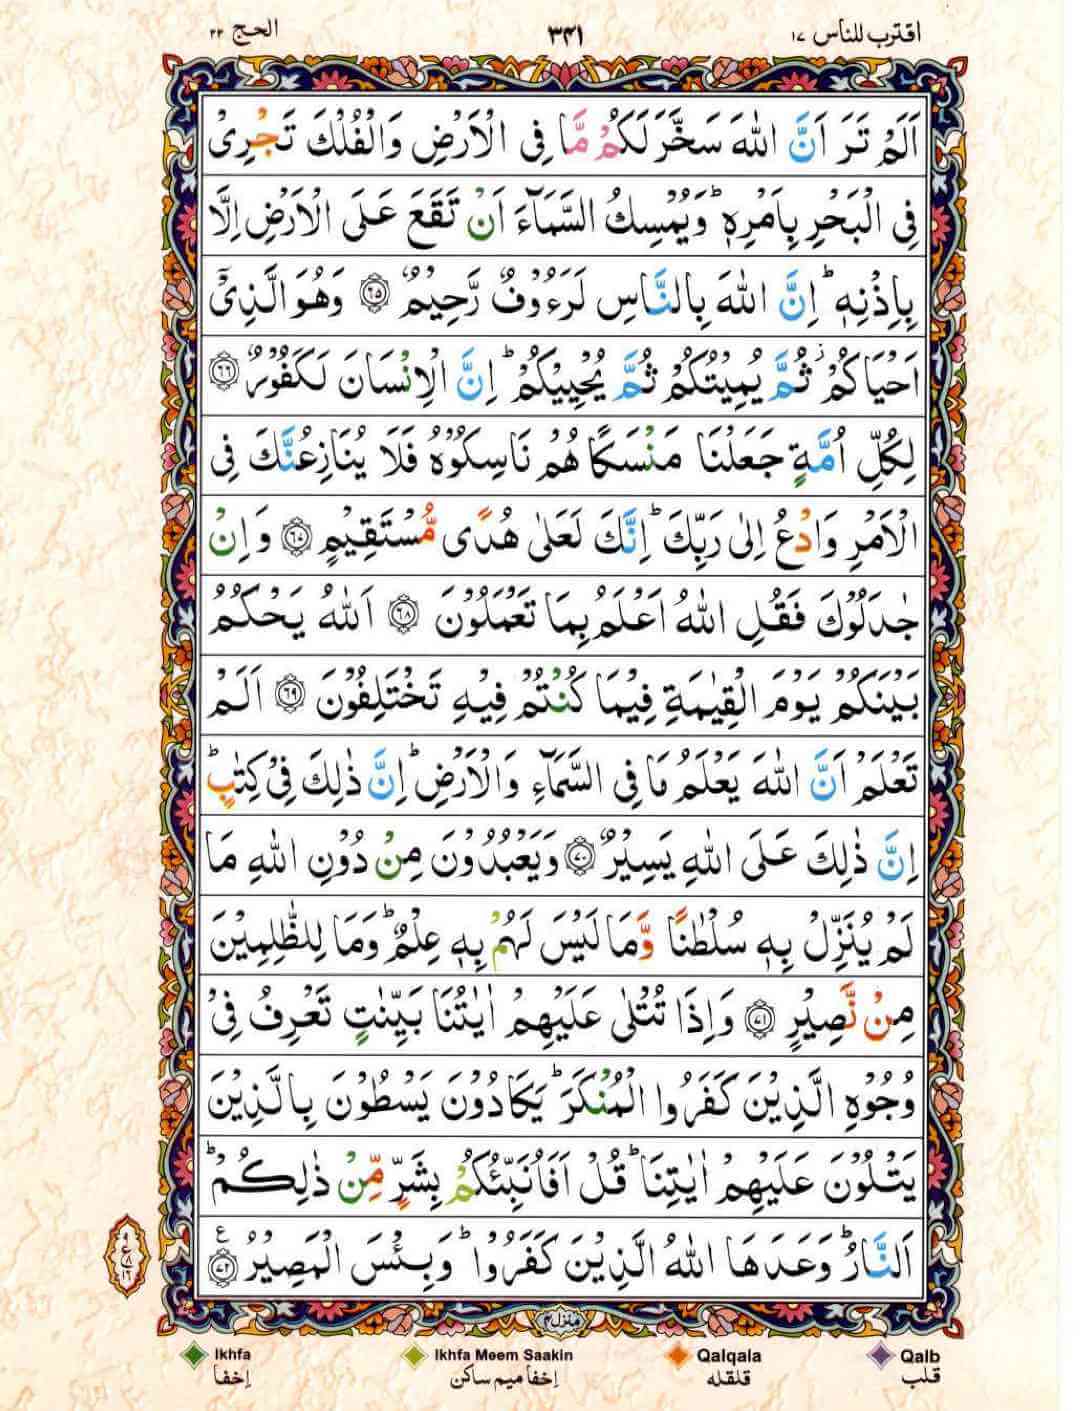 اقترب للناس ١٧ ٣٤١ الحج ٢٢
اَلَمْ تَرَ اَنَّ اللّٰهَ سَخَّرَ لَكُمْ مَّا فِی الْاَرْضِ وَالْفُلْكَ تَجْرِیْ
فِی الْبَحْرِ بِاَمْرِهٖ ؕ وَیُمْسِكُ السَّمَآءَ اَنْ تَقَعَ عَلَی الْاَرْضِ اِلَّا
بِاِذْنِهٖ ؕ اِنَّ اللّٰهَ بِالنَّاسِ لَرَءُوْفٌ رَّحِیْمٌ ﴿٦٥﴾ وَهُوَ الَّذِیْۤ
اَحْیَاكُمْ ؗ ثُمَّ یُمِیْتُكُمْ ثُمَّ یُحْیِیْكُمْ ؕ اِنَّ الْاِنْسَانَ لَكَفُوْرٌ ﴿٦٦﴾
لِكُلِّ اُمَّةٍ جَعَلْنَا مَنْسَكًا هُمْ نَاسِكُوْهُ فَلَا یُنَازِعُنَّكَ فِی
الْاَمْرِ وَادْعُ اِلٰی رَبِّكَ ؕ اِنَّكَ لَعَلٰی هُدًی مُّسْتَقِیْمٍ ﴿٦٧﴾ وَاِنْ
جٰدَلُوْكَ فَقُلِ اللّٰهُ اَعْلَمُ بِمَا تَعْمَلُوْنَ ﴿٦٨﴾ اَللّٰهُ یَحْكُمُ
بَیْنَكُمْ یَوْمَ الْقِیٰمَةِ فِیْمَا كُنْتُمْ فِیْهِ تَخْتَلِفُوْنَ ﴿٦٩﴾ اَلَمْ
تَعْلَمْ اَنَّ اللّٰهَ یَعْلَمُ مَا فِی السَّمَآءِ وَالْاَرْضِ ؕ اِنَّ ذٰلِكَ فِیْ كِتٰبٍ ؕ
اِنَّ ذٰلِكَ عَلَی اللّٰهِ یَسِیْرٌ ﴿٧٠﴾ وَیَعْبُدُوْنَ مِنْ دُوْنِ اللّٰهِ مَا
لَمْ یُنَزِّلْ بِهٖ سُلْطٰنًا وَّمَا لَیْسَ لَهُمْ بِهٖ عِلْمٌ ؕ وَمَا لِلظّٰلِمِیْنَ
مِنْ نَّصِیْرٍ ﴿٧١﴾ وَاِذَا تُتْلٰی عَلَیْهِمْ اٰیٰتُنَا بَیِّنٰتٍ تَعْرِفُ فِیْ
وُجُوْهِ الَّذِیْنَ كَفَرُوا الْمُنْكَرَ ؕ یَكَادُوْنَ یَسْطُوْنَ بِالَّذِیْنَ
یَتْلُوْنَ عَلَیْهِمْ اٰیٰتِنَا ؕ قُلْ اَفَاُنَبِّئُكُمْ بِشَرٍّ مِّنْ ذٰلِكُمْ ؕ
اَلنَّارُ ؕ وَعَدَهَا اللّٰهُ الَّذِیْنَ كَفَرُوْا ؕ وَبِئْسَ الْمَصِیْرُ ﴿٧٢﴾ ع
٩
ع ٨
١٦
منزل ٤
Ikhfa Ikhfa Meem Saakin Qalqala Qalb
إخفا إخفا ميم ساكن قلقله قلب